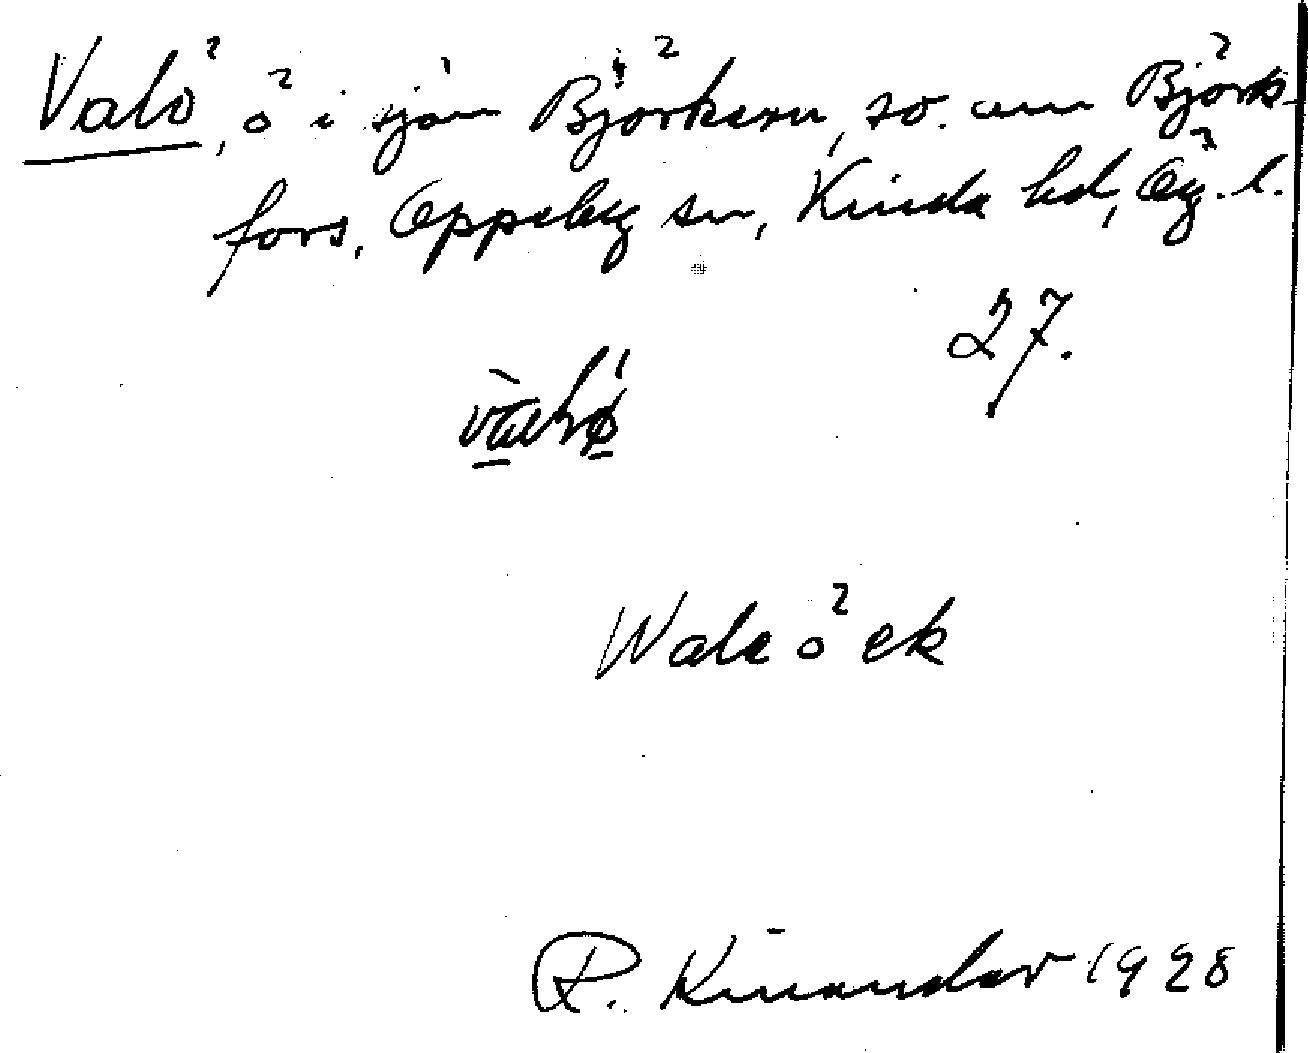 Valö, ö i sjön Björkern, sö. om Björk-
fors, Oppeby sn, Kinda hd, Ög. l.
27.
Wale ö ek
R. Kinander 1928